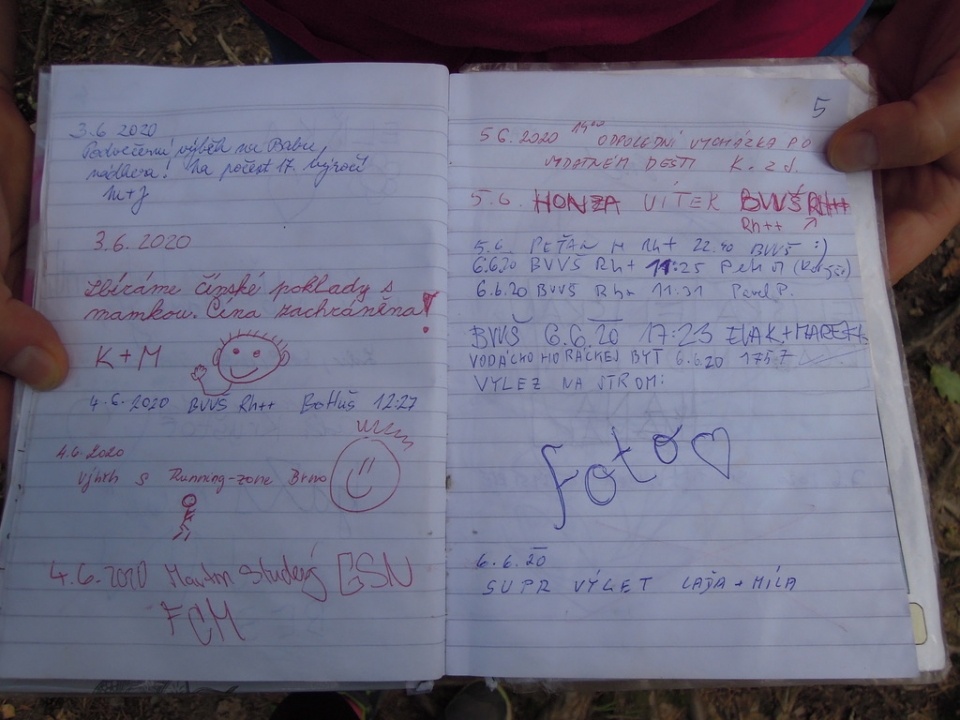 3.6 2020
Podvečerní výběh na Babu,
nádhera! Na počest 17. výročí
M+J
3.6.2020
Sbíráme čínské poklady s
mamkou. Čína zachráněna!
K+M
4.6.2020 BVVŠ Rh++ BoHuš 12:27
4.6.2020
Výběh s Running-zone Brno
4.6.2020 Martin Studený GSN
FCM
5
5.6.2020 14⁰⁰ ODPOLEDNÍ VYCHÁZKA PO
VYDATNÉM DEŠTI K. z J.
5.6. HONZA VÍTEK BVVŠ RH++
Rh++
5.6. PEŤAN M Rh+ 22.40 BVVŠ :)
6.6.20 BVVŠ Rh+ 11:25 Petr M
6.6.20 BVVŠ Rh+ 11:31 Pavel P.
BVVŠ 6.6.20 17:23 EVAK+MAREK
6.6.20 1757
VÝLEZ NA STROM:
Foto
6.6.20
SUPR VÝLET LAĎA + MÍLA